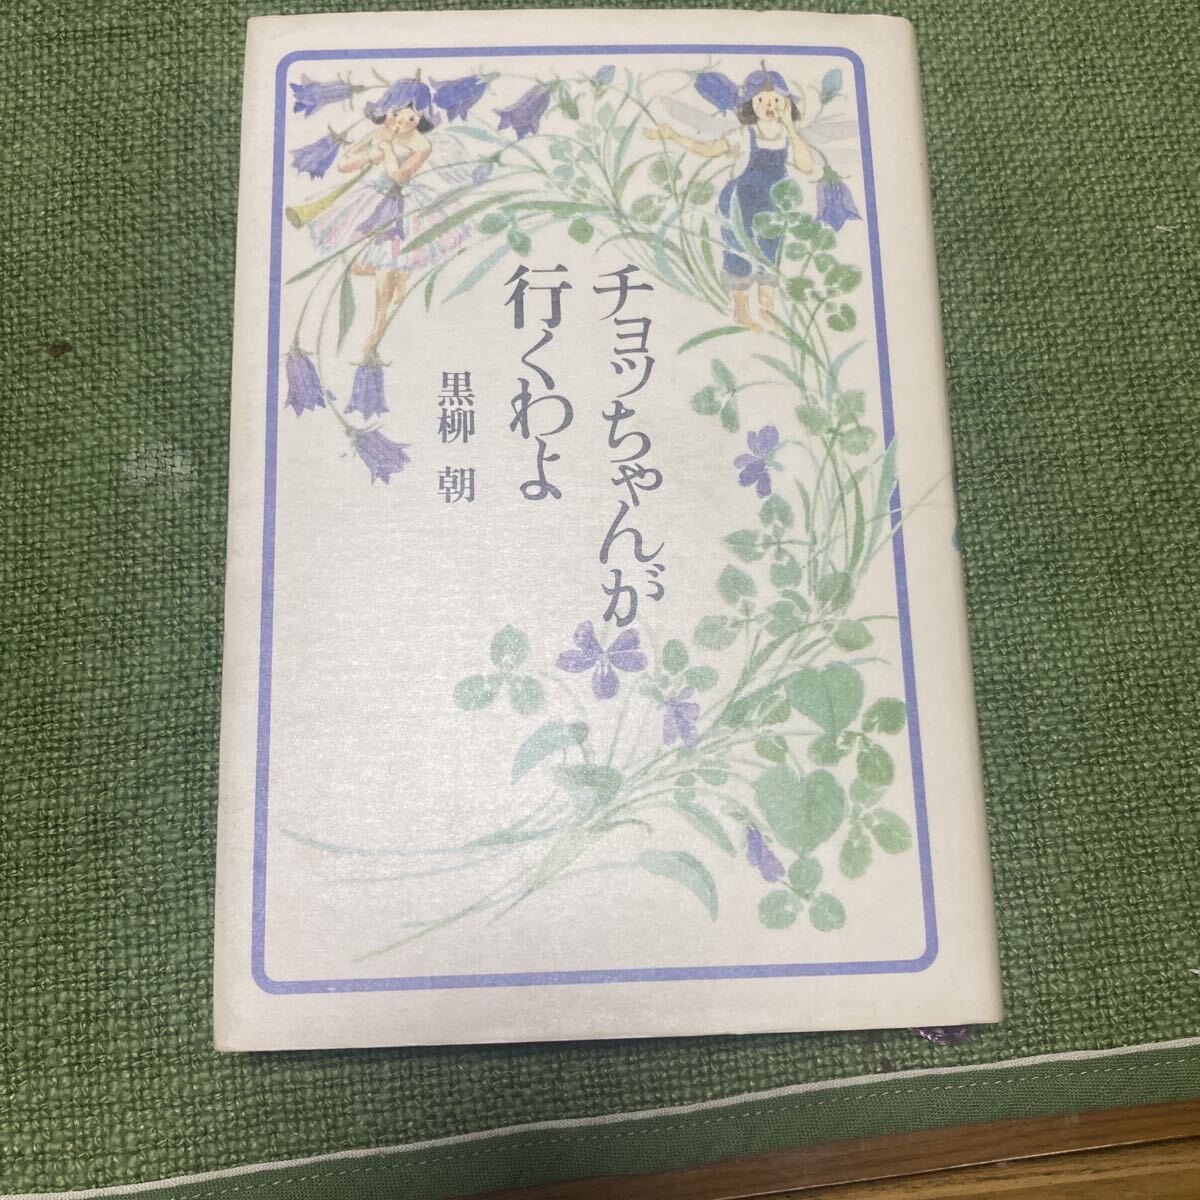 チョッちゃんが
行くわよ
黒柳 朝